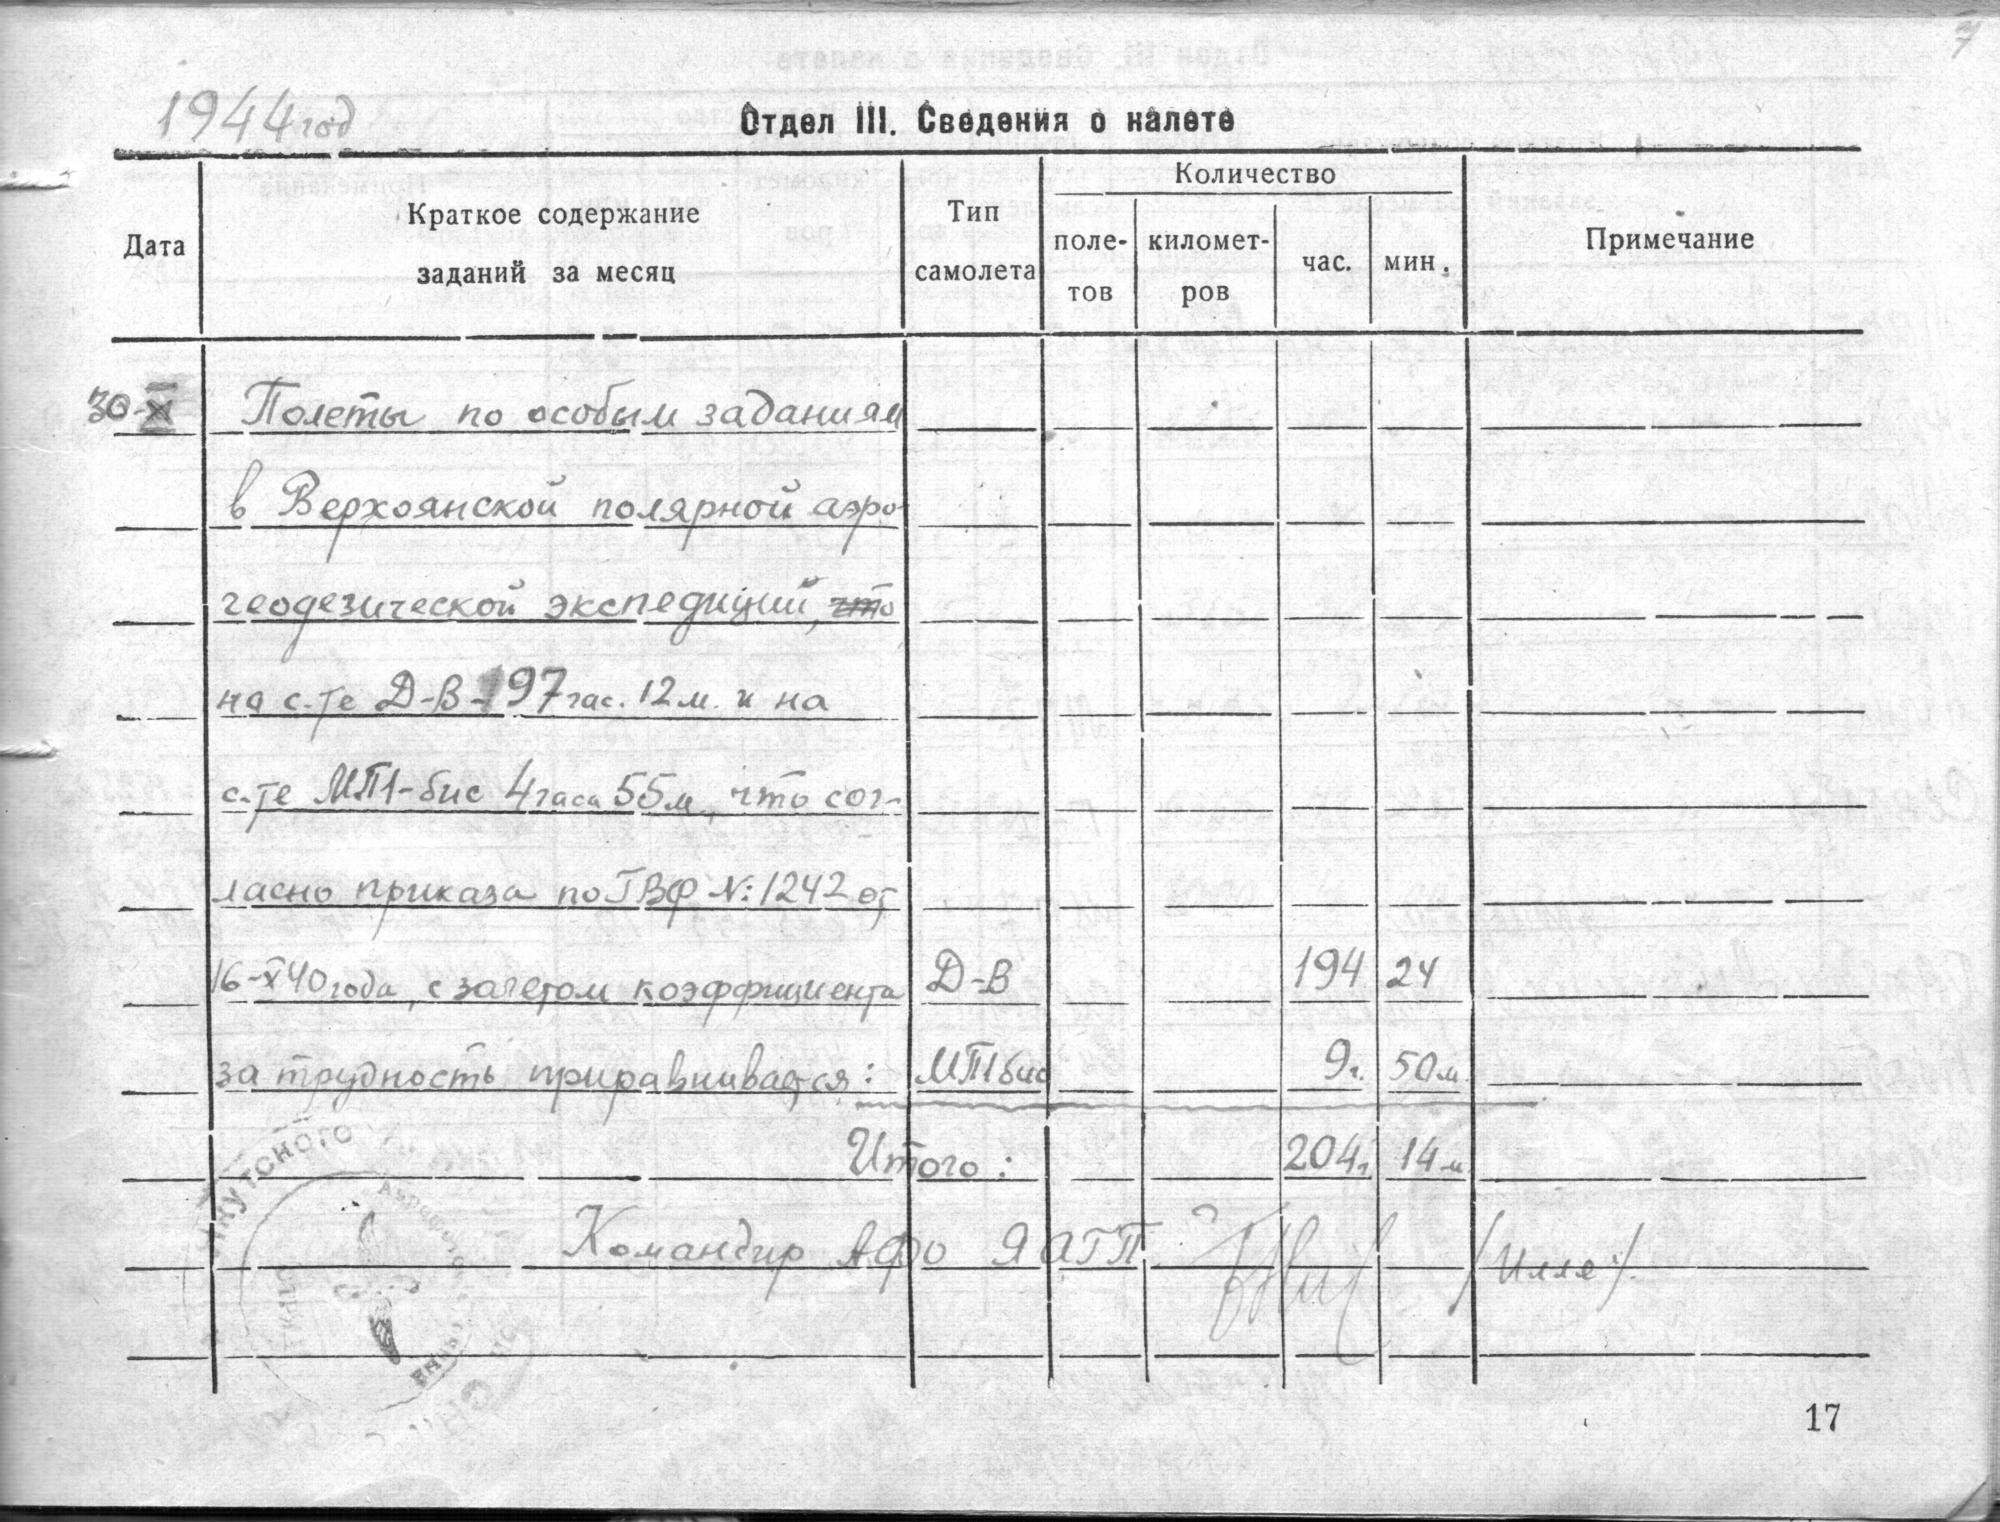 7
1944 год
Отдел III. Сведения о налете
Дата
Краткое содержание
заданий за месяц
Тип
самолета
Количество
поле-
тов
километ-
ров
час.
мин.
Примечание
30-X Полеты по особым заданиям
в Верхоянской полярной аэро-
геодезической экспедиций, что
на с-те Д-В - 97 час. 12 м. и на
с-те МП1-бис 4 часа 55 м, что сог-
ласно приказа по ГВФ №: 1242 от
16-X 40 года, с зачетом коэффициента Д-В 194 24
за трудность приравнивается: МП1бис 9ч. 50м.
Итого: 204ч. 14м.
Командир АФО ЯАГП /Илле/.
ЯКУТСКОГО
17